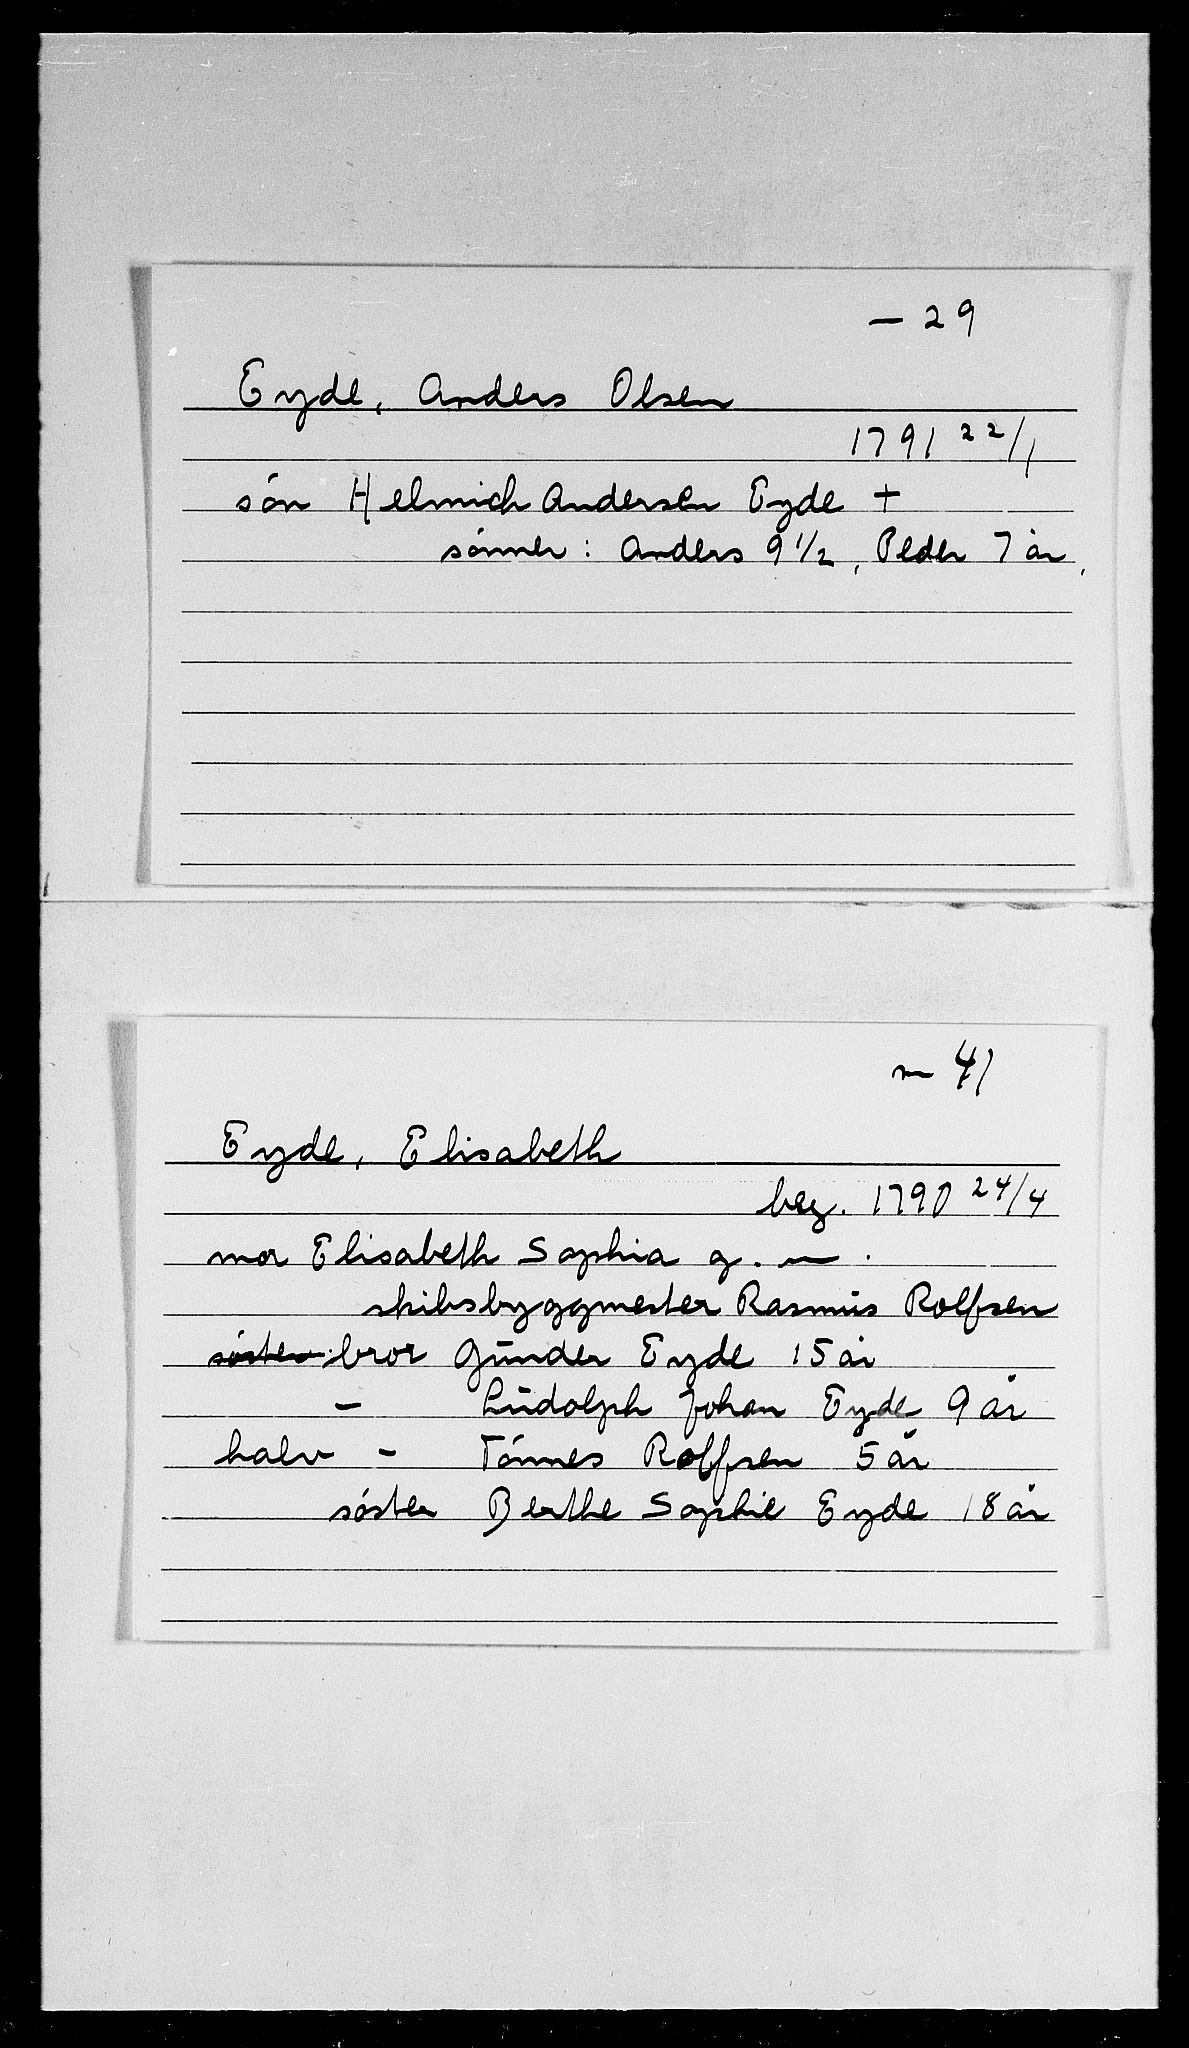 – 29
Eyde, Anders Olsen
1791 22/1
søn Helmich Andersen Eyde +
sønner: Anders 9 1/2, Peder 7 år,
41
Eyde, Elisabeth
beg. 1790 24/4
mor Elisabeth Sophia g. — .
skibsbyggmester Rasmus Rolfsen
søster bror Gunder Eyde 15 år
– Ludolph Johan Eyde 9 år
halv – Tønnes Rolfsen 5 år
søster Berthe Sophie Eyde 18 år